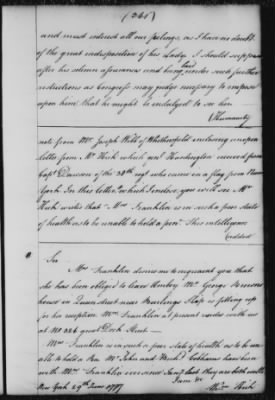 (361)
and must interest all our feelings, as I have no doubt
of the great indisposition of his Lady. I should suppose
after his solemn assurance and being laid under such further
restrictions as Congress may judge necessary to impose
upon him, that he might be indulged to see her
Humanity
note from Mr. Joseph Webb of Whethersfield enclosing an open
letter from Mr. Hick which genl. Washington received from
Capt. Dawson of the 38th regt. who came in a flag from New
York. In this letter which I enclose you will see Mr.
Hick writes that Mrs. Franklin is in such a poor state
of health as to be unable to hold a pen. This intelligence
(added
Sir
Mrs. Franklin desires me to acquaint you that
she has been obliged to leave Henley Mr. George
house in Queen street near Burlings Slip is fitting up
for her reception. Mrs. Franklin at present resides with us
at No. 226 great Dock Street—
Mrs. Franklin is in such a poor state of health as to be un
able to hold a Pen Mr. John and Hick's Cobhams have been
with Mrs. Franklin ever since last they are both well
I am &c
New York 29th June 1777 Hick